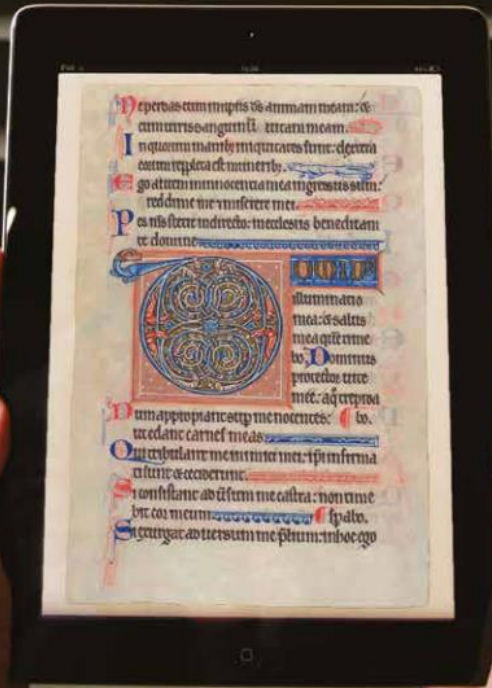 Ne perdas cum impiis ds animam meam: &
cum viris sanguinū vitam meam.
In quorum manibȝ iniquitates sunt: dextera
eorum repleta est muneribȝ.
Ego autem in innocentia mea ingressus sum:
redime me & miserere mei.
Pes ms stetit in directo: in ecclesiis benedicam
te domine
Domin
illuminatio
mea: & salus
mea quē time
bo. Dominus
protector vite
mee: a q̊ trepida
Dum appropiant sup me nocentes: bo.
ut edant carnes meas
Qui tribulant me inimici mei: ipi infirma
ti sunt & ceciderunt.
Si consistant adūsum me castra: non time
bit cor meum spabo.
Si exurgat adversum me p̄lium: in hoc ego